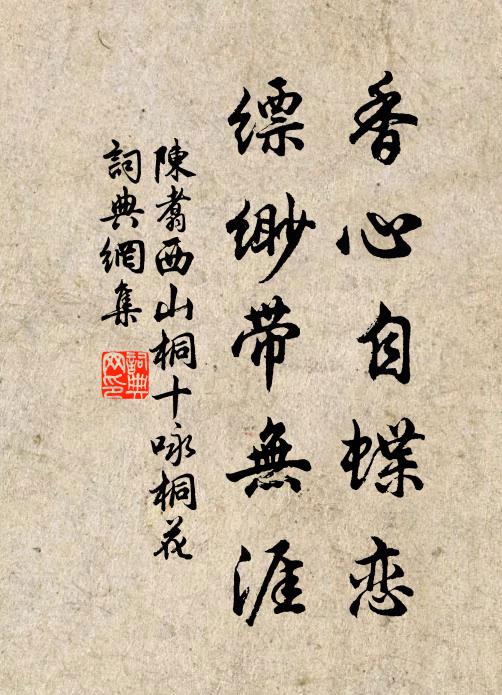 香心自蝶恋
缥缈带無涯
陳翥西山桐十咏桐花
詞典網集
詞典
网印